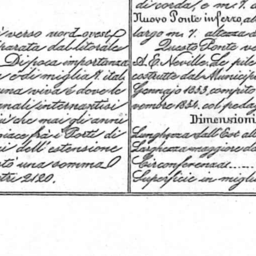 verso nord ovest
parata dal litorale
Di poca importanza
di miglia 7. ital.
una viva è dove le
canali internatisi
che mai gli anni
fra i Porti di
dell'estensione
una somma
metri 2120.
di cordel, e m. 7.
Nuovo Ponte inferro, al
largo m. 7. altezza d
Questo Ponte ve
A. E. Neville. Le pile
costrutte dal Municip
Gennajo 1853, compito
vembre 1854. col pedag
Dimensioni
Lunghezza dall'Est all
Larghezza maggiore da
Circonferenza......
Superficie in migli